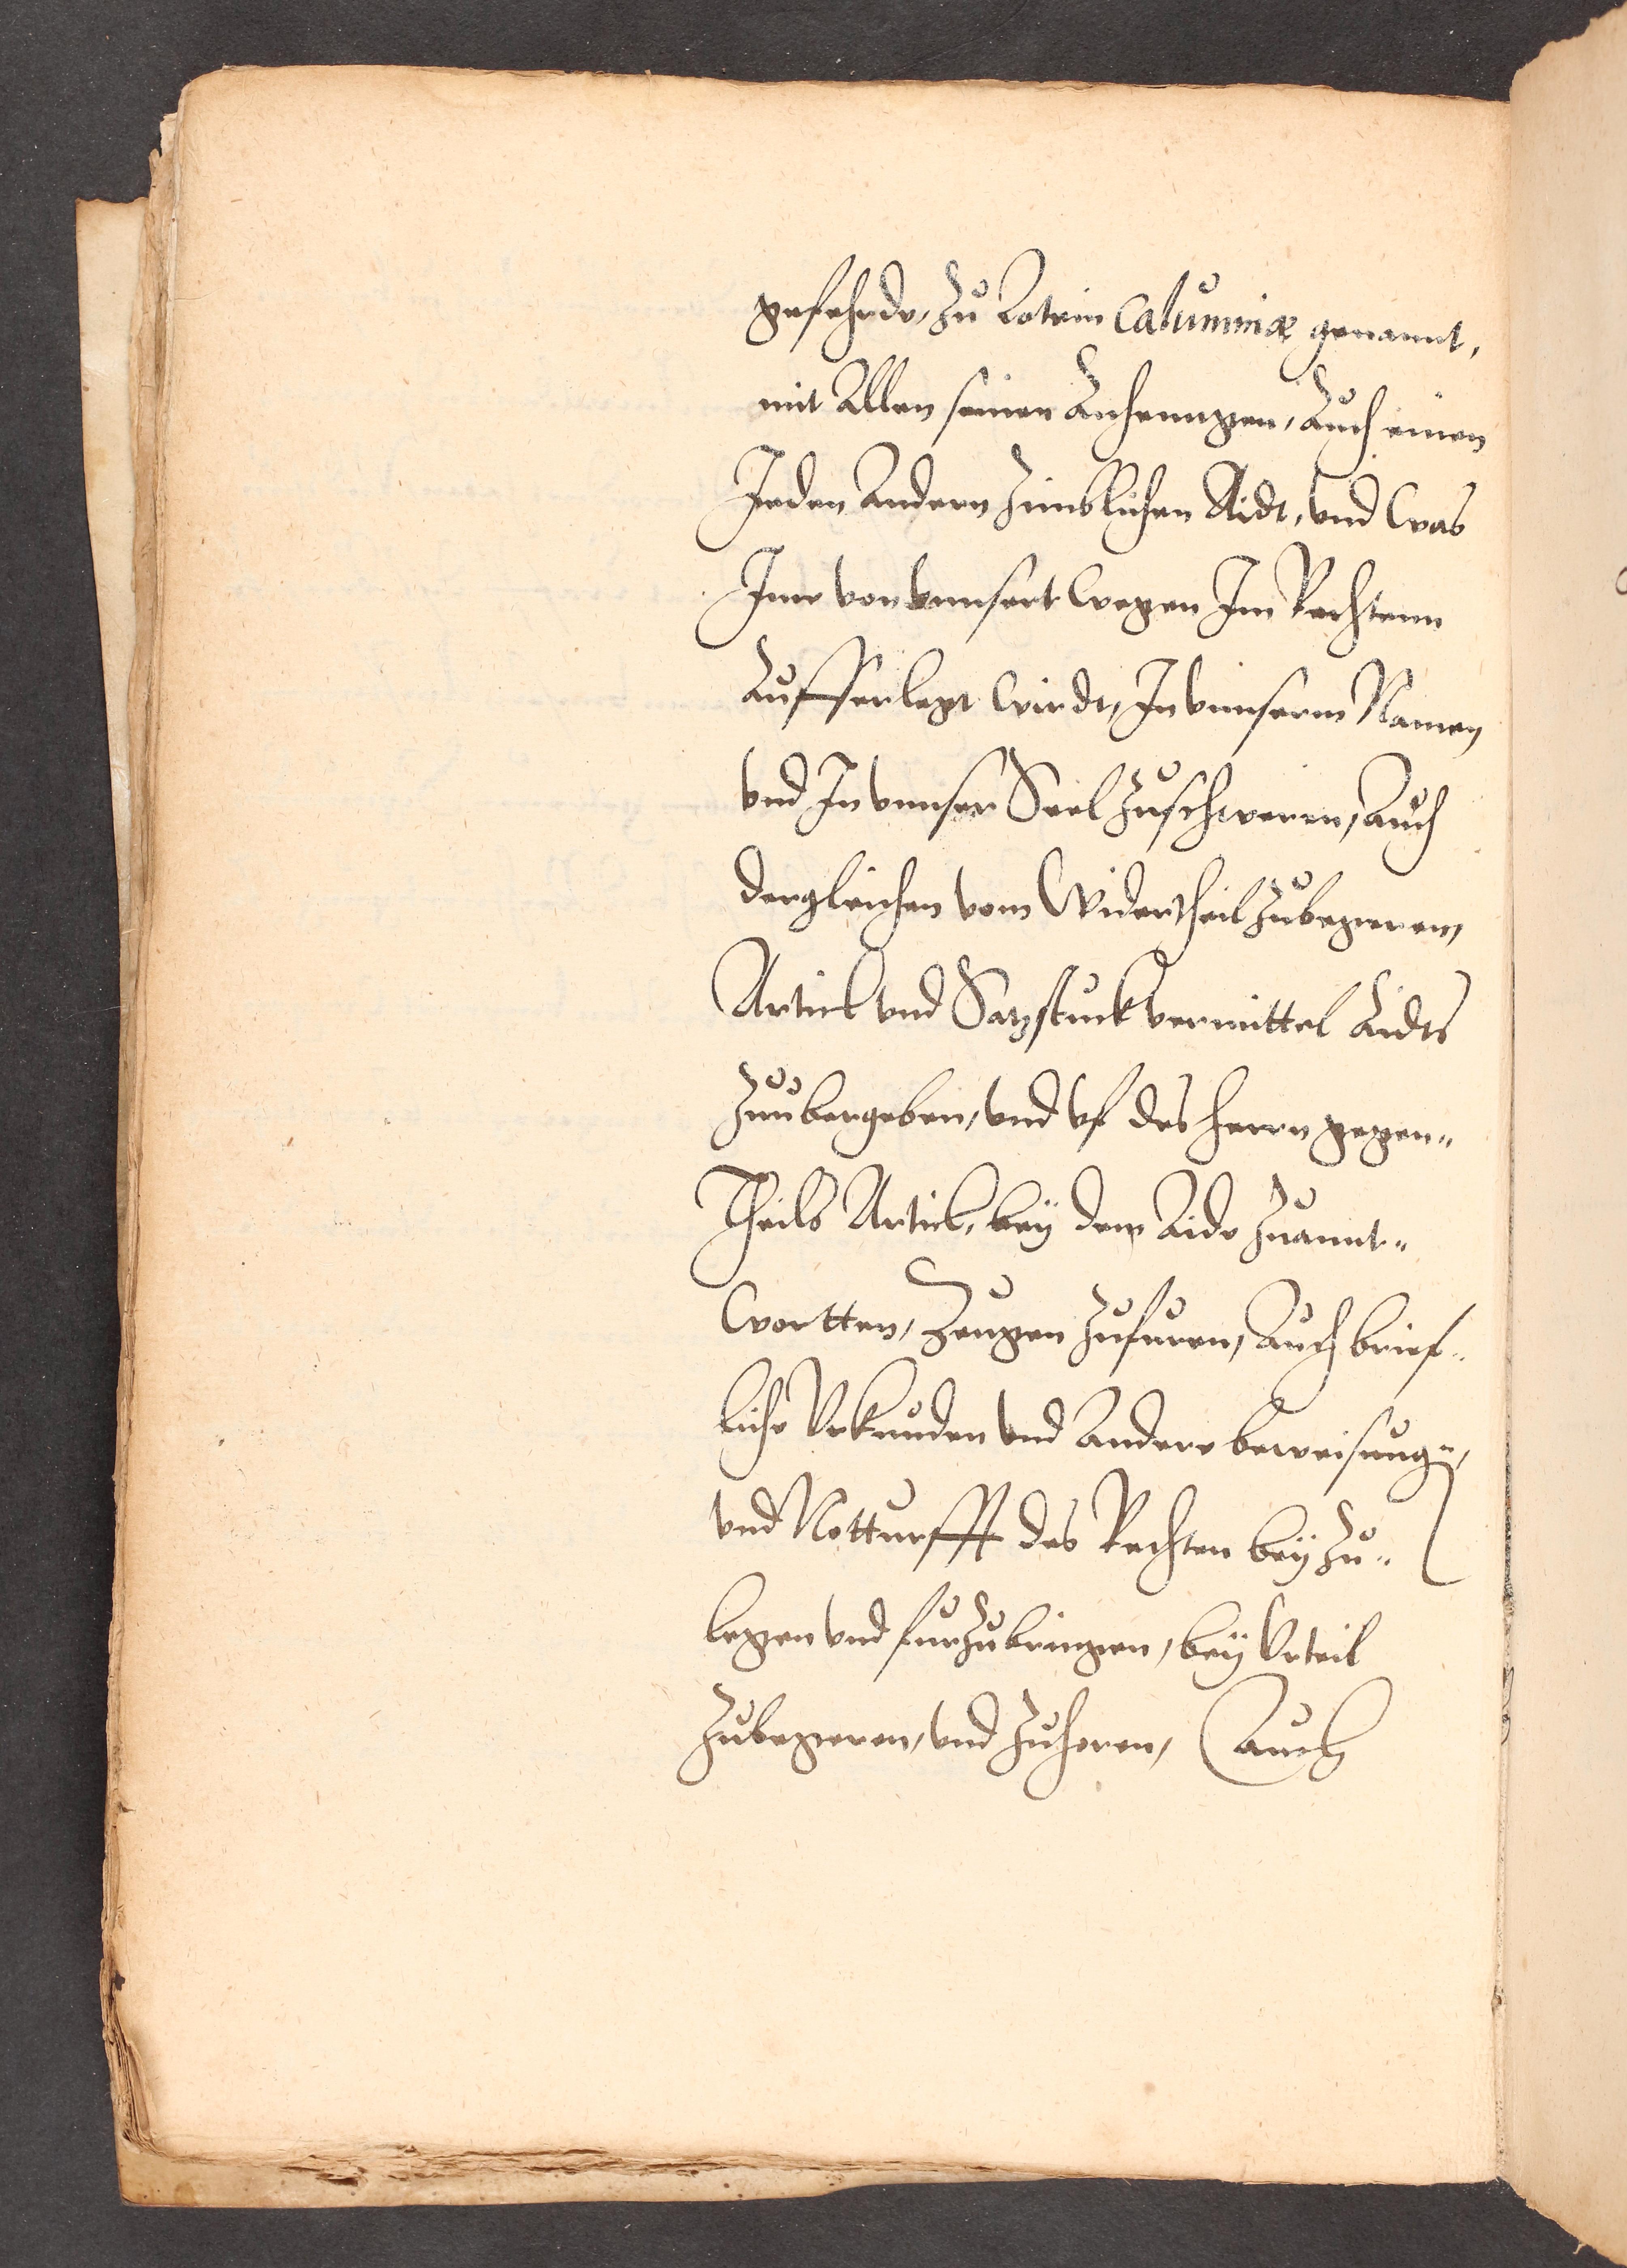 gefehrde, zu Latein Calumniæ genannt,
mit Allen seinen Anhenngen, Auch einen
Jeden Andern zimblichen Aidt, vnd was
Jme von vnnsert wegen Jm Rechtenn
Aufferlegt wirdt, Jn vnnserm Namen
vnd Jn vnnser Seel zuschweren, Auch
dergleichen vom Widertheil zubegeren,
Articl vnd Satzstuck vermittel Aidts
zuubergeben, vnd vf des herrn gegen„
Theils Articl, bey dem Aide zuannt„
wortten, Zeugen zufuren, Auch brief„
liche Vrkunden vnd Andere beweisung„,
vnd Notturfft des Rechten bey zu„
legen vnd furzubringen, bey Vrteil
zubegeren, vnd zuhoren, Auch